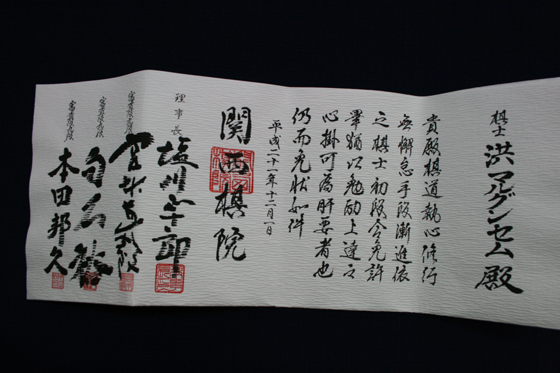 棋士 洪マルグンセム 殿
貴殿棋道執心修行
無懈怠手段漸進依
之棋士初段令免許
畢猶以勉励上達之
心掛可為肝要者也
仍而免状如件
平成二十一年十二月一日
関西棋院
理事長 塩川正十郎
白石裕
本田邦久